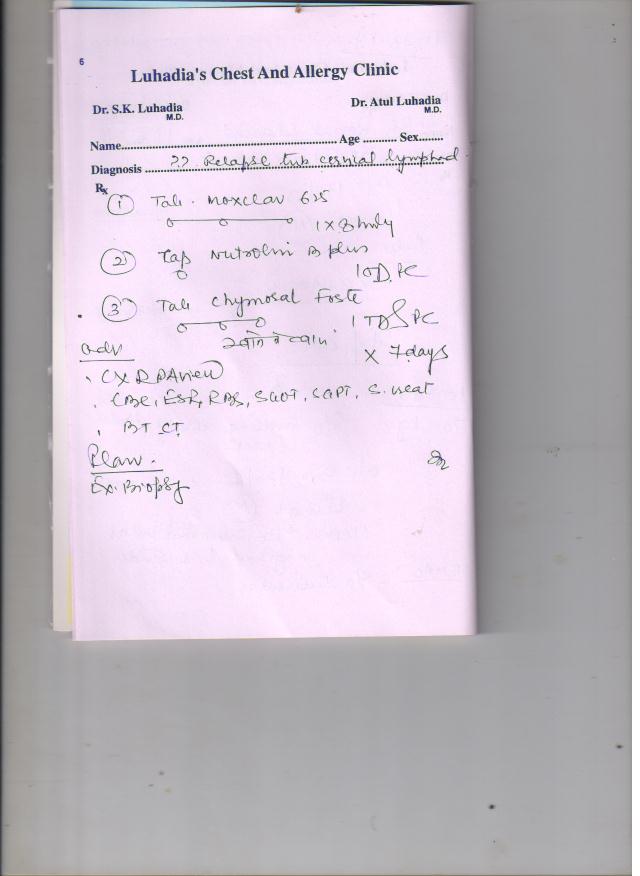 6
Luhadia's Chest And Allergy Clinic
Dr. S.K. Luhadia
M.D.
Dr. Atul Luhadia
M.D.
Name.......................................................... Age .......... Sex.......
Diagnosis ?? Relapse tub cervical lymphad.
Rx
① Tab. Moxclav 625
1 x 8 hrly
② Cap Nutrolin B plus
1 OD PC
③ Tab Chymosal Forte
1 TDS PC
खाने के बाद
x 7 days
Adv
CXR PA view
CBC, ESR, RBS, SGOT, SGPT, S. Creat
BT CT
Plan.
Ex. Biopsy